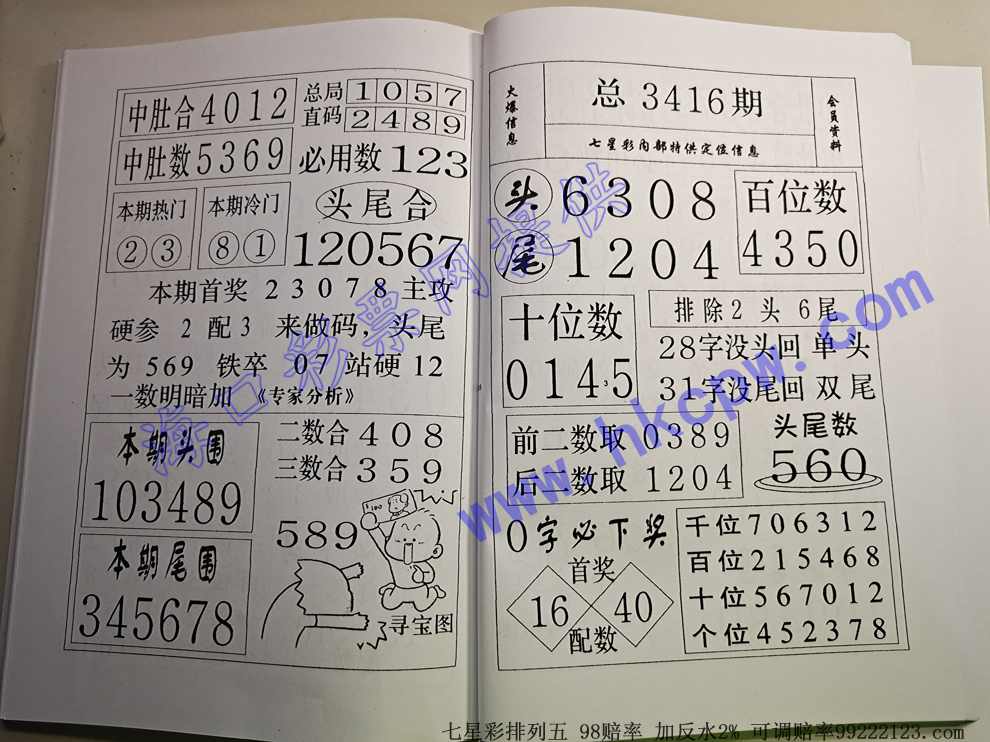 中肚合4012
中肚数5369
总局 1057
直码 2489
必用数123
本期热门 ②③
本期冷门 ⑧①
头尾合
120567
本期首奖 2 3 0 7 8 主攻
硬参 2 配 3 来做码，头尾
为 5 6 9 铁卒 0 7 站硬 1 2
一数明暗加 《专家分析》
本期头围
103489
本期尾围
345678
二数合 4 0 8
三数合 3 5 9
589
寻宝图
火爆信息
总 3416期
七星彩内部特供定位信息
会员资料
头 6308
尾 1204
百位数
4350
十位数
0145
3
排除2 头 6尾
28字没头回 单 头
31字没尾回 双 尾
前二数取 0389
后二数取 1204
头尾数
560
0字必下奖
首奖
16 40
配数
千位706312
百位215468
十位567012
个位452378
海口彩票网提供
www.hkcpw.com
七星彩排列五 98赔率 加反水2% 可调赔率99222123.com